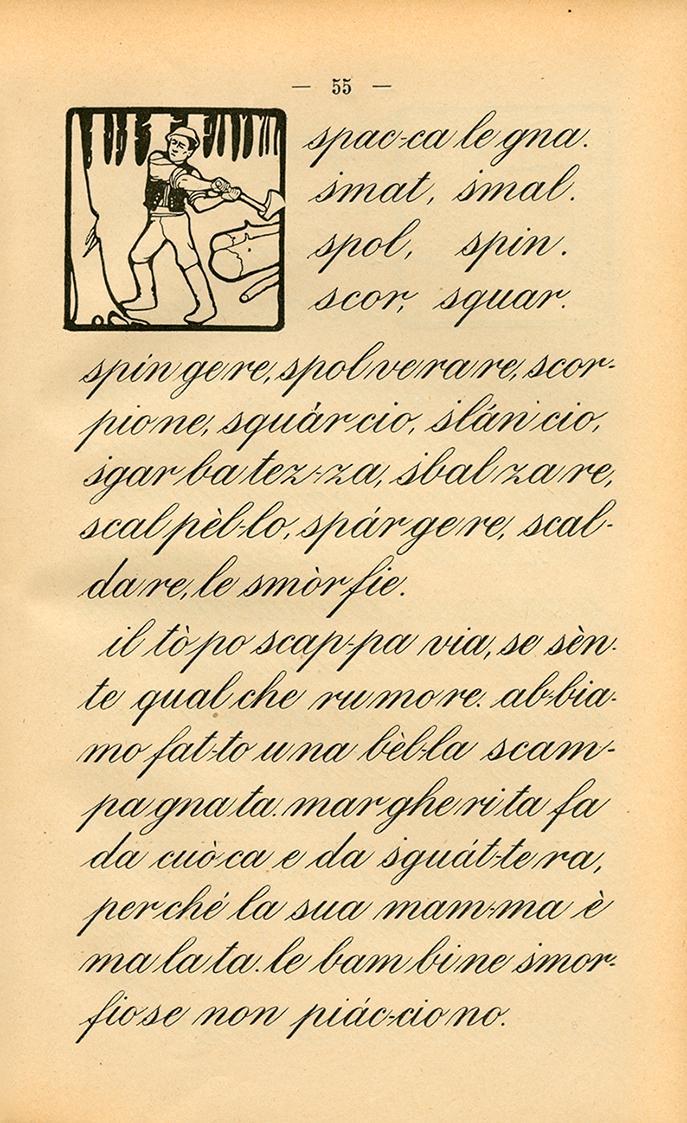 — 55 —
spac-ca le gna.
ṡmat, ṡmal.
spol, spin.
scor, squar.
spin ge re, spol ve ra re, scor-
pio ne, squàr cio, ṡlán cio,
ṡgar ba tez-za, ṡbal za re,
scal pèl-lo, spár ge re, scal-
da re, le smòr fie.
il tò po scap-pa via, se sèn-
te qual che ru mo re. ab-bia-
mo fat-to u na bèl-la scam-
pa gna ta. mar ghe ri ta fa
da cuò ca e da sguát-te ra,
per ché la sua mam-ma è
ma la ta. le bam bi ne ṡmor-
fio se non piác-cio no.